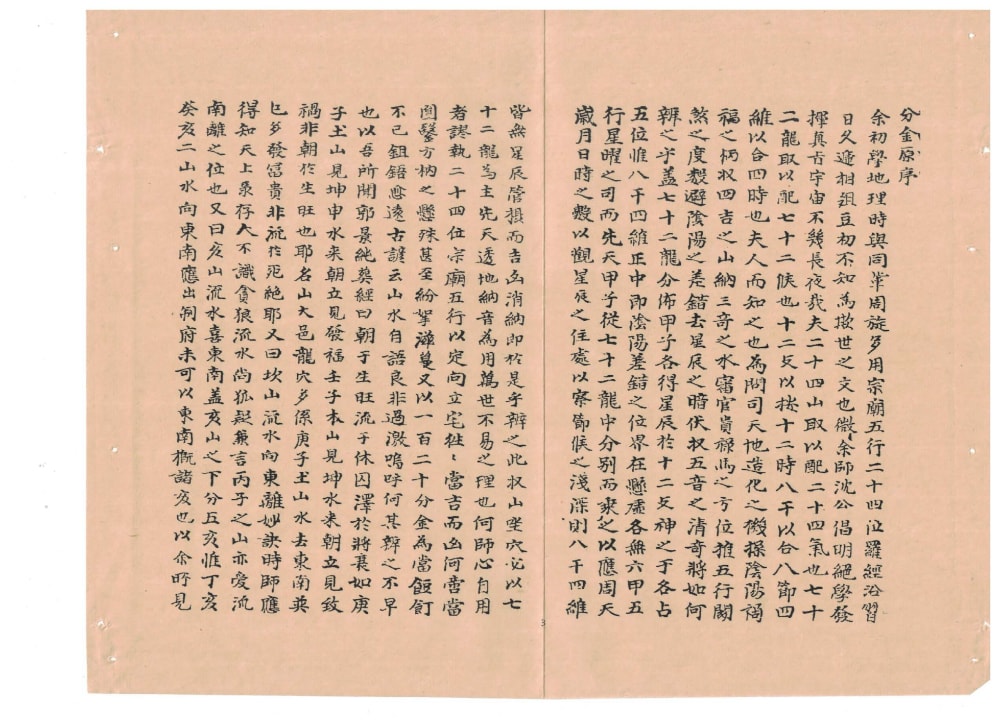 分金原序
余初學地理時與同輩周旋多用宗廟五行二十四位羅經沿習
日久遞相俎豆初不知為欺世之文也微余師沈公倡明絕學發
揮真㫖宇宙不幾長夜哉夫二十四山取以配二十四氣也七十
二龍取以配七十二候也十二支以按十二時八干以合八節四
維以合四時也夫人而知之也為問司天地造化之機操陰陽禍
福之柄收四吉之山納三奇之水審官貴祿馬之方位推五行闗
煞之度數避陰陽之差錯去星辰之暗伏收五音之清奇將如何
辨之乎盖七十二龍分佈甲子各得星辰於十二支神之下各占
五位惟八干四維正中即陰陽差錯之位界在懸虛各無六甲五
行星曜之司而先天甲子從七十二龍中分别而乘之以應周天
歲月日時之數以觀星辰之住處以察節候之淺深則八干四維
皆無星辰管攝而吉凶消納即於是乎辨之此收山坐穴必以七
十二龍為主先天透地納音為用萬世不易之理也何師心自用
者謬執二十四位宗廟五行以定向立宅徃〻當吉而凶何啻當
圓鑿方枘之懸殊甚至紛挐 蔓又以一百二十分金為當飣餖
不已鉏鋙愈遠古諺云山水自語良非過激嗚呼何其辨之不早
也以吾所聞郭景純𦵏經曰朝于生旺流于休囚澤於將衰如庚
子土山見坤申水来朝立見發福壬子木山見坤水来朝立見致
禍非朝於生旺也耶名山大邑龍穴多係庚子土山水去東南巽
巳多發富貴非流於死絕耶又曰坎山流水向東離妙訣時師應
得知天上衆存人不識貪狼流水尚狐疑兼言丙子之山亦愛流
南離之位也又曰亥山流水喜東南盖亥山之下分五亥惟丁亥
癸亥二山水向東南應出洞府未可以東南概諸亥也以余所見